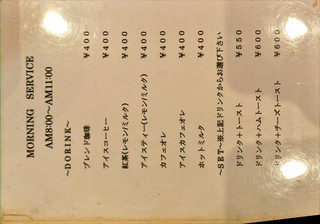 MORNING SERVICE
AM8:00～AM11:00
～DORINK～
ブレンド珈琲 ￥400
アイスコーヒー ￥400
紅茶(レモン/ミルク) ￥400
アイスティー(レモン/ミルク) ￥400
カフェオレ ￥400
アイスカフェオレ ￥400
ホットミルク ￥400
～SET～※上記ドリンクからお選び下さい
ドリンク＋トースト ￥550
ドリンク＋ハムトースト ￥600
ドリンク＋チーズトースト ￥600